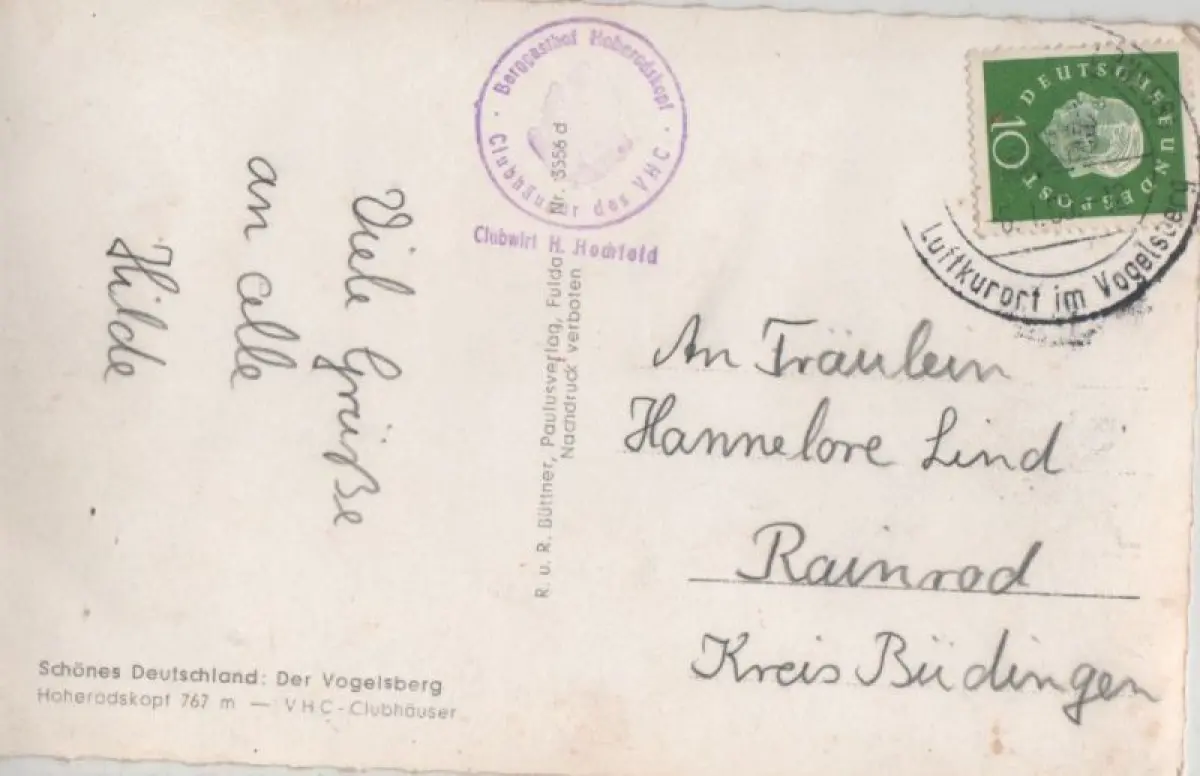 Viele Grüße
an alle
Hilde
Schönes Deutschland: Der Vogelsberg
Hoherodskopf 767 m — VHC-Clubhäuser
· Berggasthof Hoherodskopf ·
Clubhäuser des VHC
Clubwirt H. Hochfeld
Nr. 3556 d
R. u. R. Büttner, Paulusverlag, Fulda
Nachdruck verboten
DEUTSCHE BUNDESPOST
10
Luftkurort im Vogelsberg
An Fräulein
Hannelore Lind
Rainrod
Kreis Büdingen